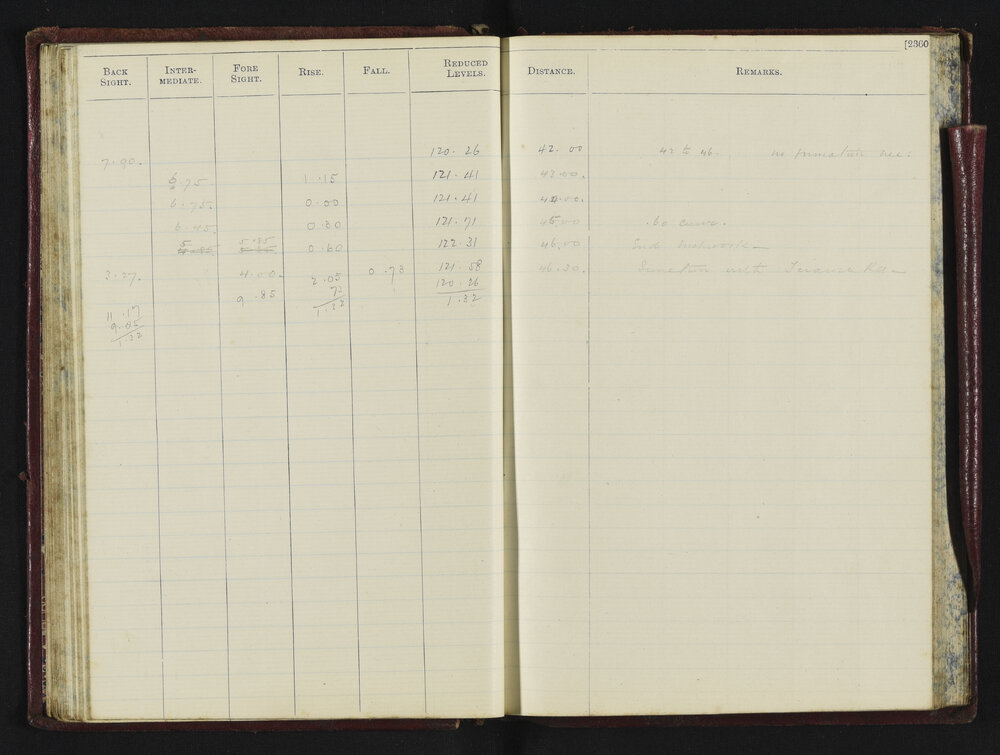 [2360
BACK SIGHT. INTER-MEDIATE. FORE SIGHT. RISE. FALL. REDUCED LEVELS. DISTANCE. REMARKS.
7.90. 120.26 42.00 42 to 46.
6.75 1.15 121.41 43.00.
6.75. 0.00 121.41 44.00.
6.45. 0.30 121.71 45.00 .60 curve.
5.85 0.60 122.31 46.00 End
3.27. 4.00. 0.73 121.58 46.30. Junction with Terrace Rd
9.85 2.05 120.26
73 1.32
1.32
11.17
9.85
1.32